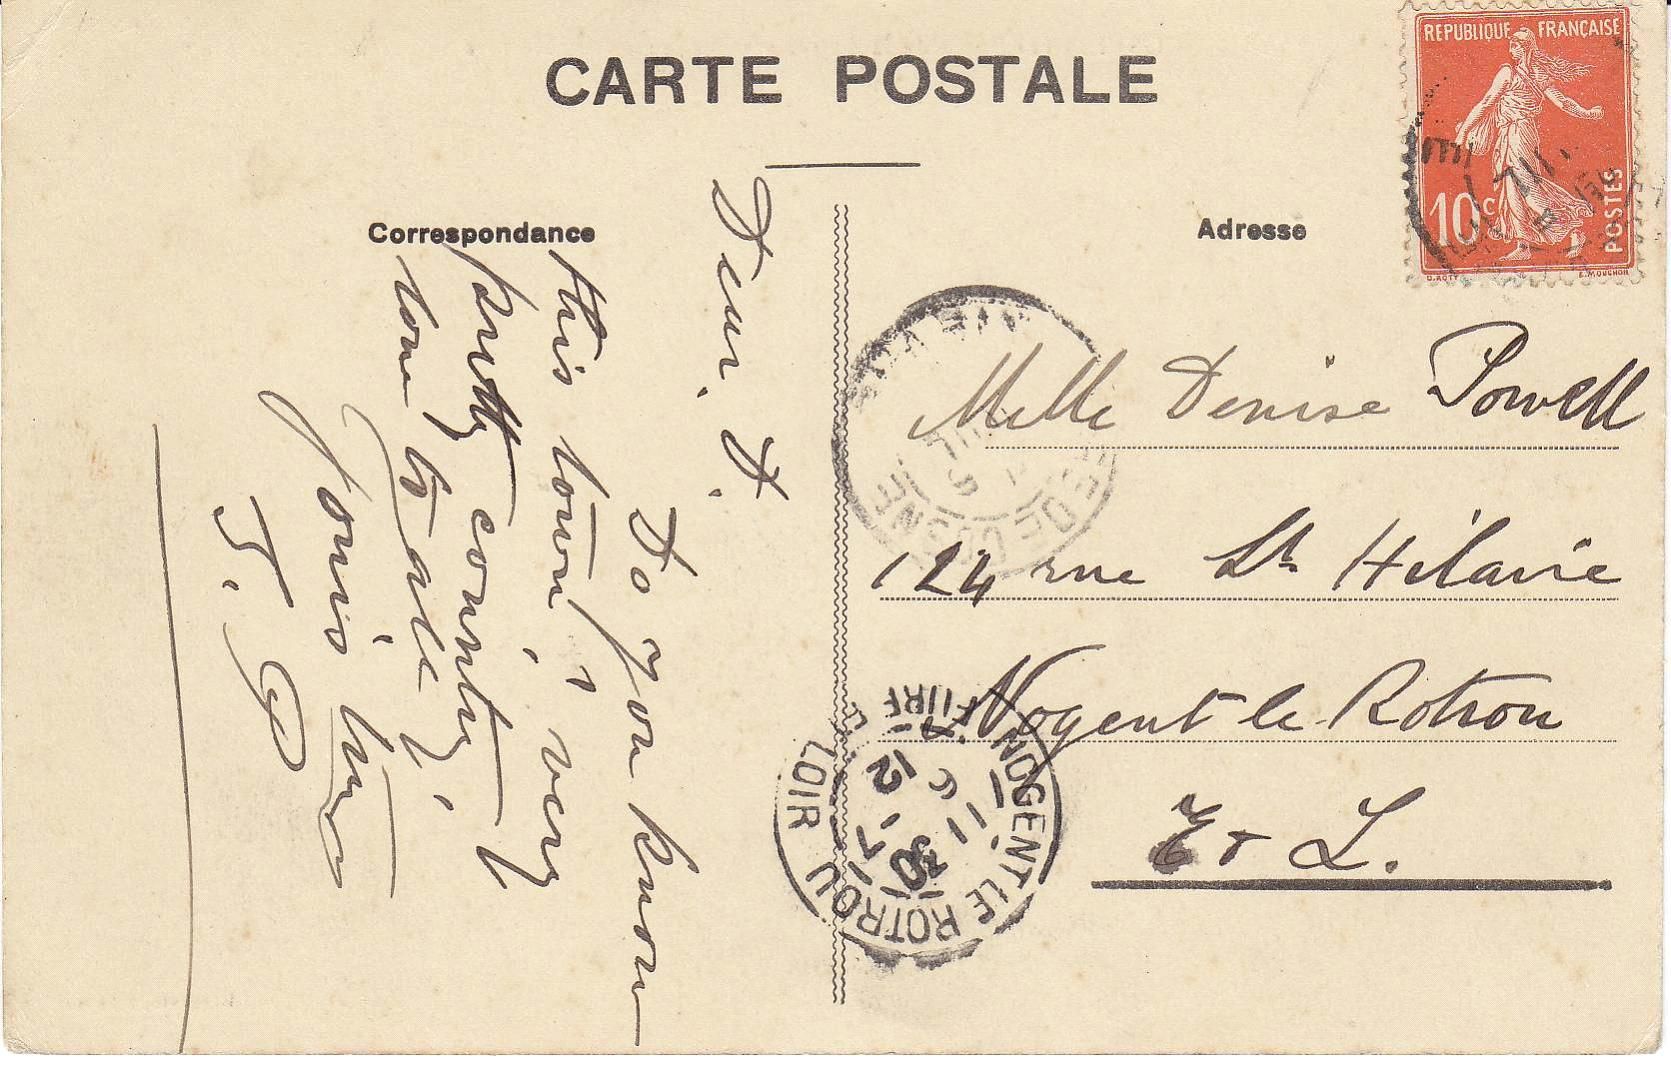 CARTE POSTALE
Correspondance
Adresse
REPUBLIQUE FRANÇAISE
10c
POSTES
O. ROTY
E. MOUCHON
Dear. D.
Do you know
this town, 's very
pretty country,
love to all
yours
J. P
Melle Denise Powell
124 rue St Hilaire
Nogent le Rotrou
E & L.
NOGENT LE ROTROU
EURE
LOIR
7 -
12 - 7
11
30
SEINE